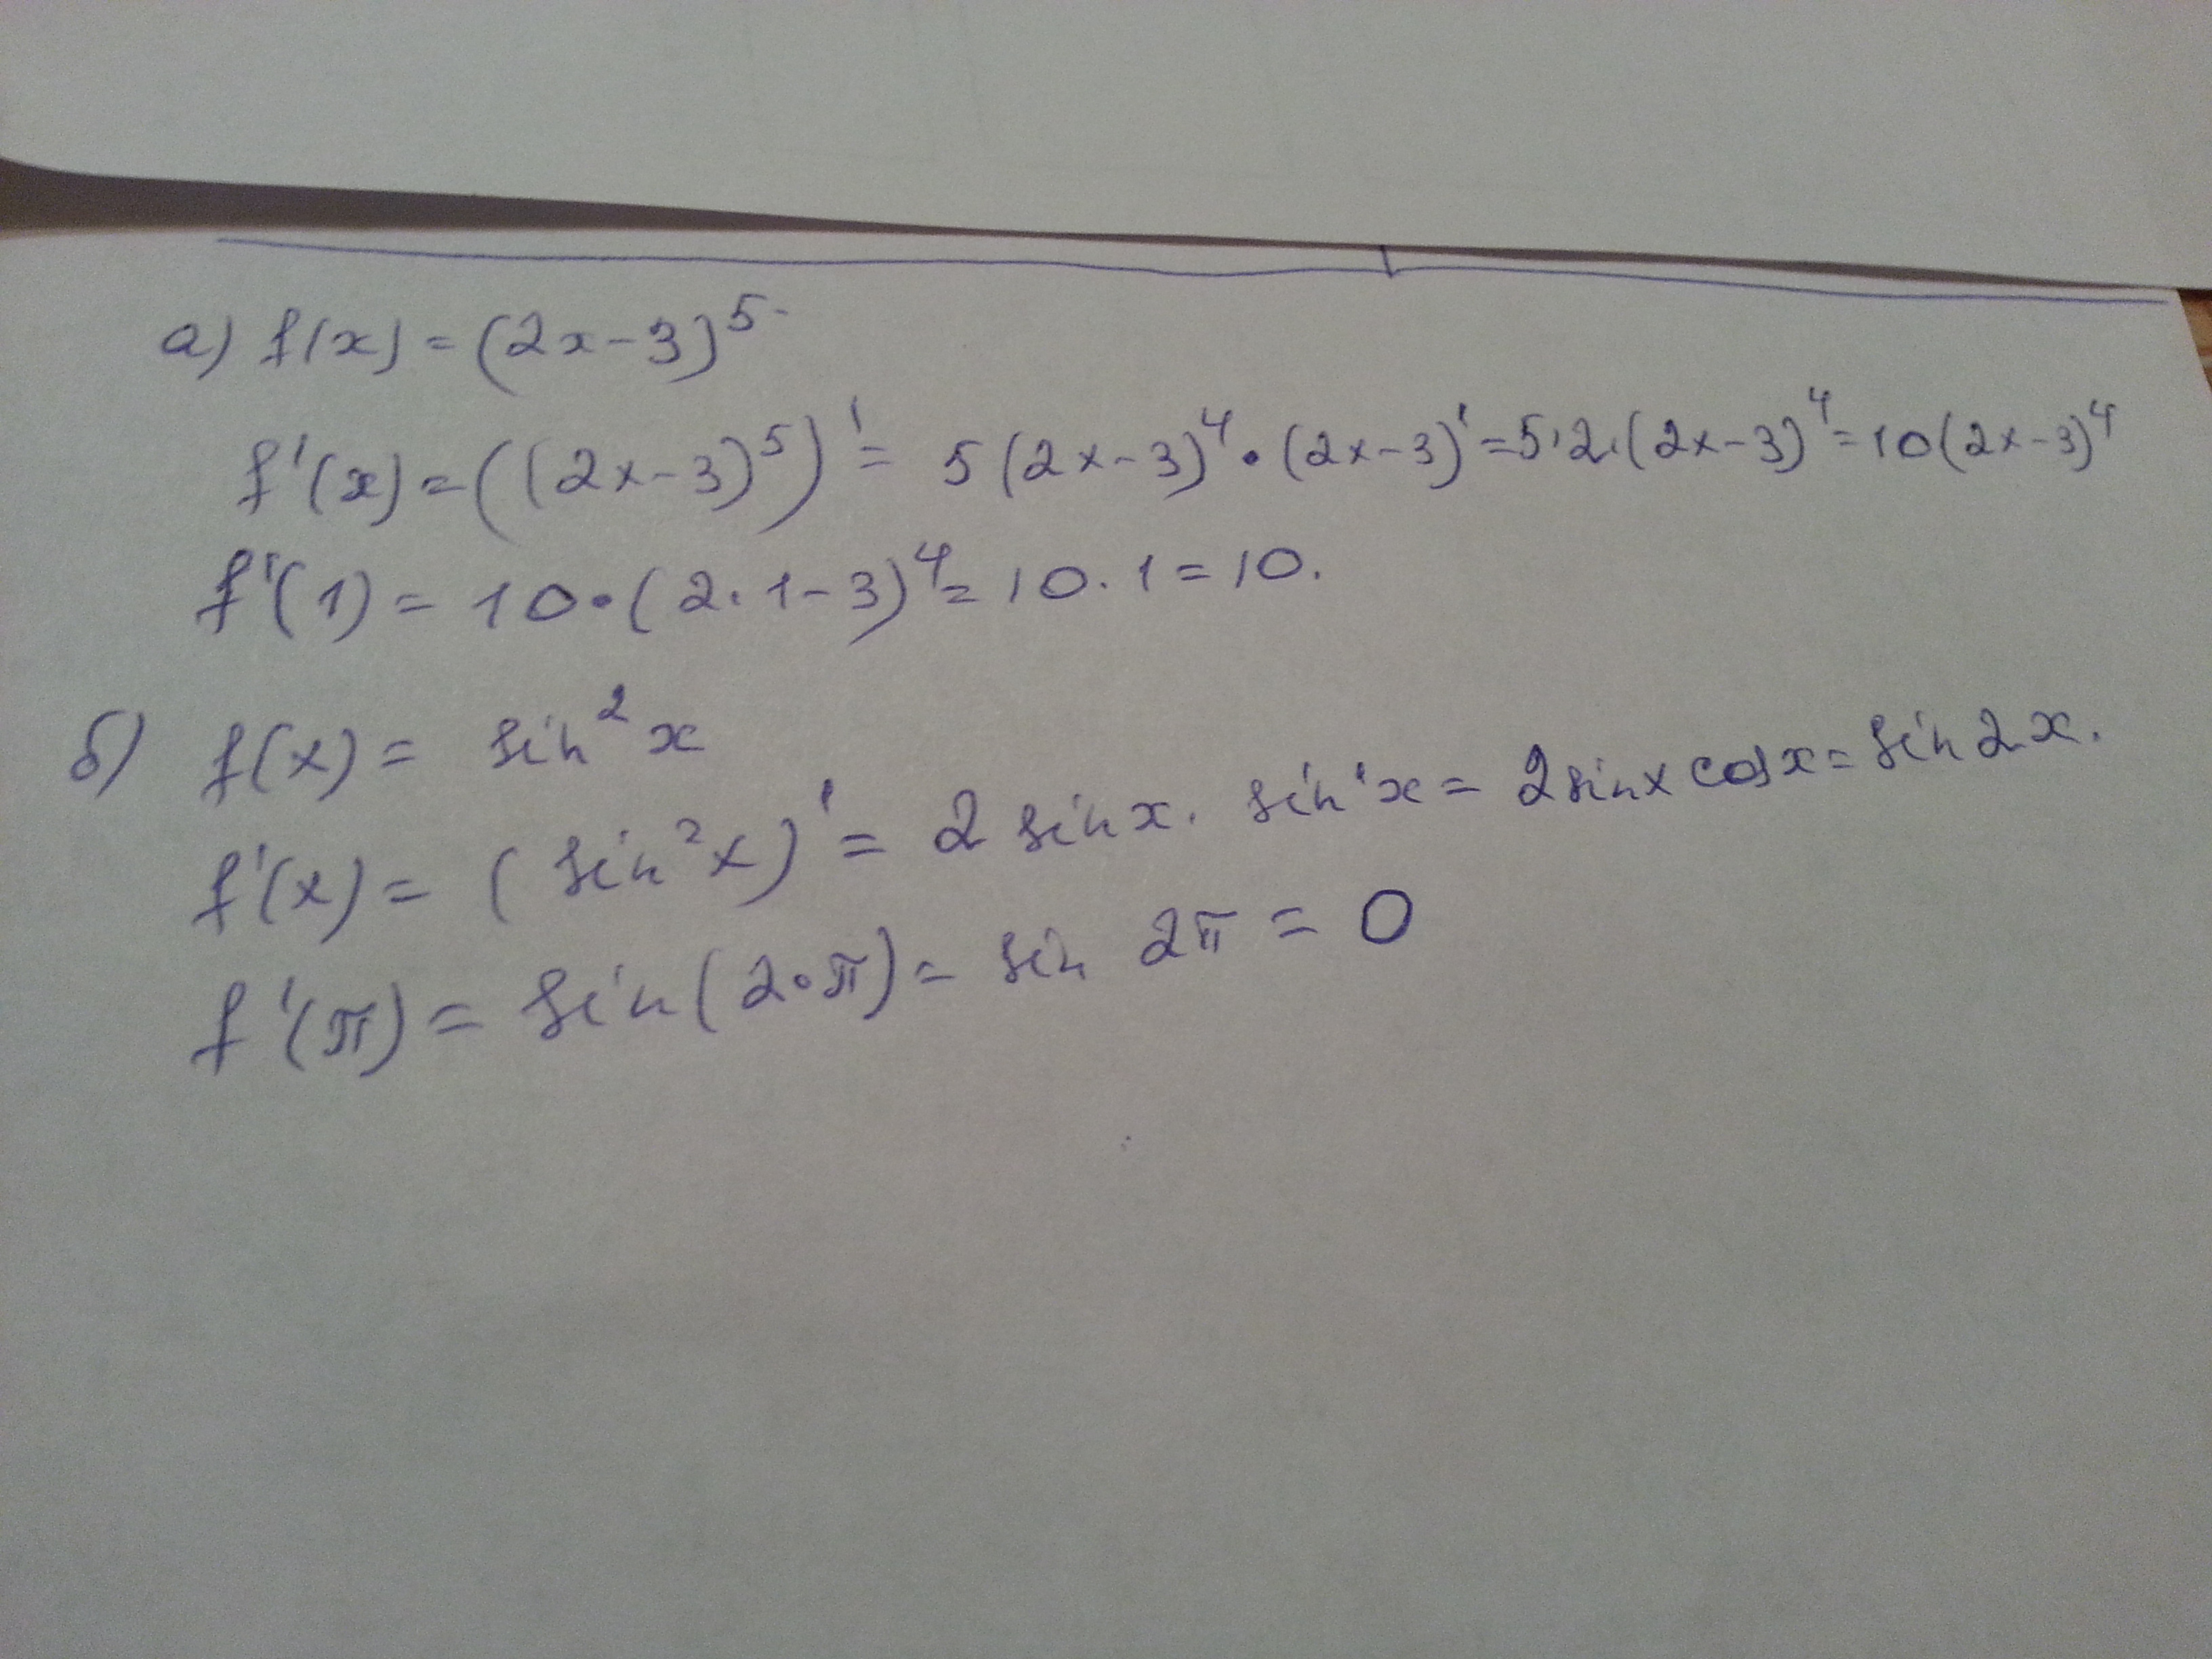 а) f(x) = (2x-3)⁵
f'(x) = ((2x-3)⁵)' = 5(2x-3)⁴ • (2x-3)' = 5·2·(2x-3)⁴ = 10(2x-3)⁴
f'(1) = 10•(2·1-3)⁴ = 10·1 = 10.
б) f(x) = sin²x
f'(x) = (sin²x)' = 2 sin x · sin'x = 2 sin x cos x = sin 2x.
f'(π) = sin(2•π) = sin 2π = 0